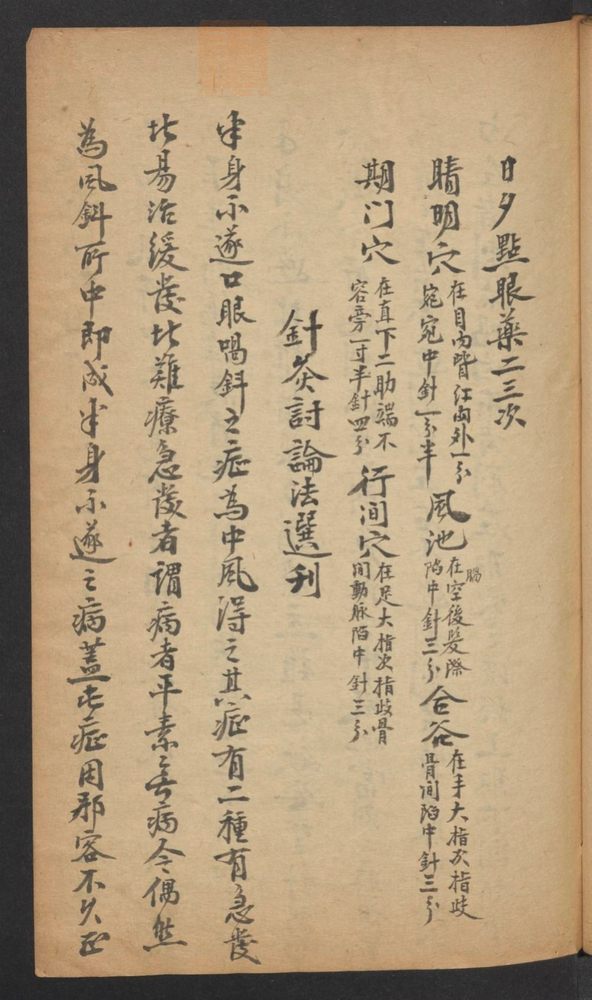 日夕點眼藥二三次
睛明穴 在目內眥紅肉外一分宛宛中針一分半 風池 在腦空後髮際陷中針三分 合谷 在手大指次指歧骨間陷中針三分
期门穴 在直下二肋端不容旁一寸半針四分 行间穴 在足大指次指歧骨间動脉陷中針三分
針灸討論法選刋
半身不遂口眼喎斜之症為中风得之其症有二種有急發
比易治緩發比難療急發者謂病者平素無病今偶然
為风斜所中即成半身不遂之病蓋此症因邪容不久正